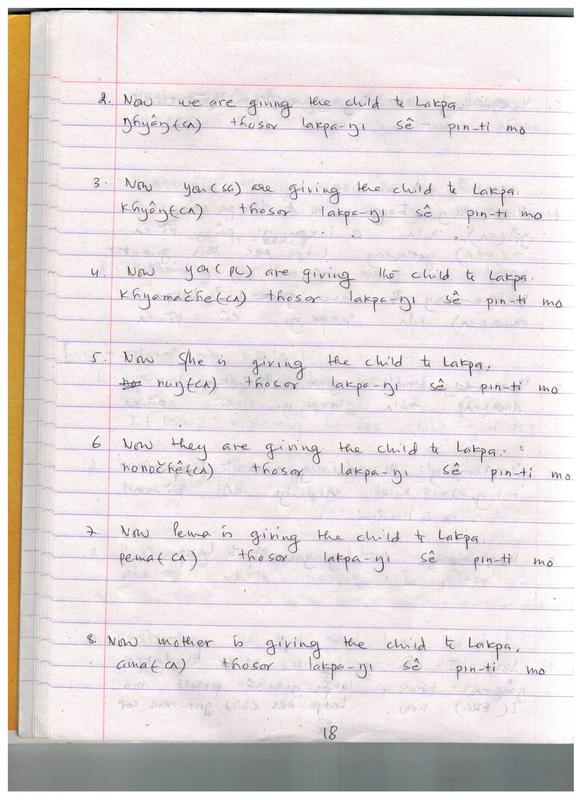 2. Now we are giving the child to Lakpa.
ŋhyâŋ(cʌ) thosor lakpa-ŋı sê pın-ti mo
3. Now you (SG) are giving the child to Lakpa.
khyâŋ(cʌ) thosor lakpa-ŋı sê pın-ti mo
4. Now you (PL) are giving the child to Lakpa.
khyamačhe(-cʌ) thosor lakpa-ŋı sê pın-ti mo
5. Now S/he is giving the child to Lakpa.
nuŋ(cʌ) thosor lakpa-ŋı sê pın-ti mo
6 Now they are giving the child to Lakpa.
nonočhê(cʌ) thosor lakpa-ŋı sê pın-ti mo
7. Now Pema is giving the child to Lakpa
pema(cʌ) thosor lakpa-ŋı sê pın-ti mo
8. Now mother is giving the child to Lakpa.
ama(cʌ) thosor lakpa-ŋı sê pın-ti mo
18